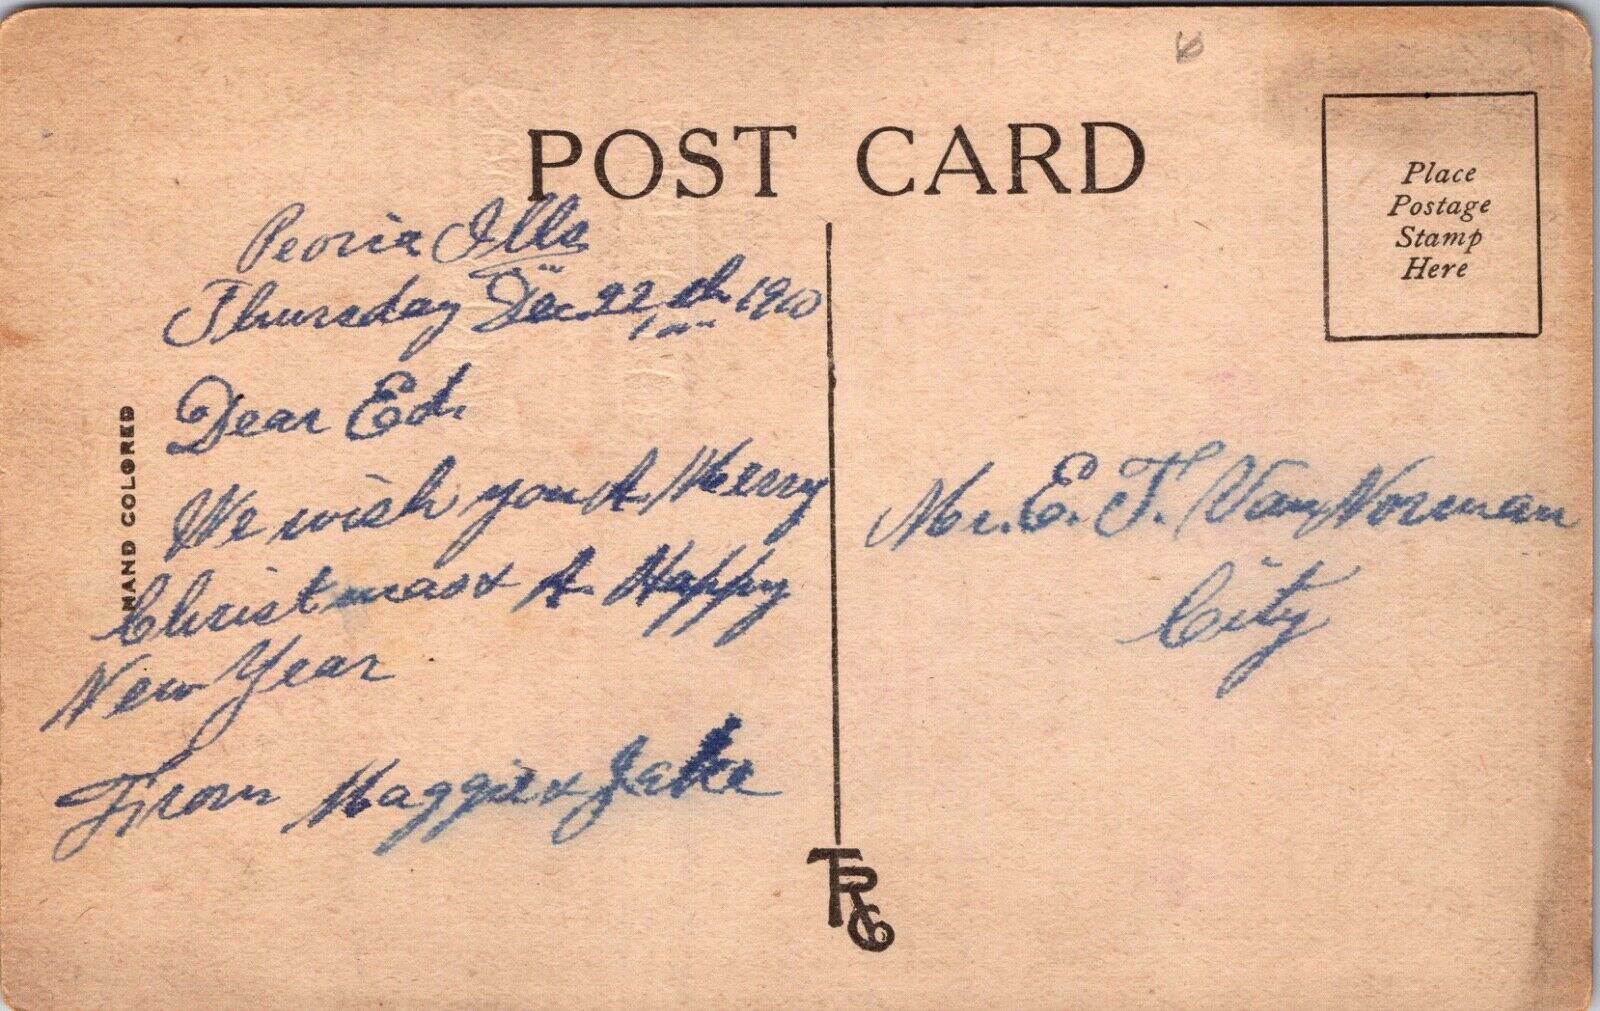 POST CARD
Place
Postage
Stamp
Here
HAND COLORED
Peoria Ills
Thursday Dec. 22th 1910
Dear Ed.
We wish you A Merry
Christmas & A Happy
New Year
From Maggie & Jake
Mr. E. T. Van Norman
City
TRCo